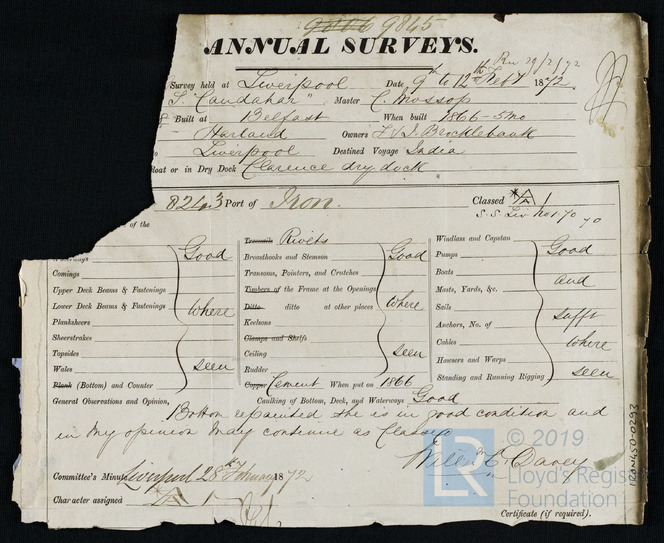 9006 9845
ANNUAL SURVEYS.
Rec 29/2/72
Survey held at Liverpool Date 9th to 12th Feby 1872.
S. "Candahar" Master C. Mossop
Built at Belfast When built 1866-5mo
Harland Owners T. & J. Brocklebank
Liverpool Destined Voyage India
float or in Dry Dock Clarence dry dock
824.3 Port of Iron. Classed A 1
S.S. Liv Nov 70 70
of the
Comings
Upper Deck Beams & Fastenings
Lower Deck Beams & Fastenings
Planksheers
Sheerstrakes
Topsides
Wales
Plank (Bottom) and Counter
Good
where
seen
Treenails Rivets
Breasthooks and Stemson
Transoms, Pointers, and Crutches
Timbers of the Frame at the Openings
Ditto ditto at other places
Keelsons
Clamps and Shelfs
Ceiling
Rudder
Copper Cement When put on 1866
Good
where
seen
Windlass and Capstan
Pumps
Boats
Masts, Yards, &c.
Sails
Anchors, No. of
Cables
Hawsers and Warps
Standing and Running Rigging
Good
and
sufft
where
seen
General Observations and Opinion, Caulking of Bottom, Deck, and Waterways Good
Bottom repainted she is in good condition and
in my opinion may continue as Classed
Willm C. Davey
Committee's Minute Liverpool 28th February 1872
Character assigned A 1
Certificate (if required).
IRON450-0293
LR
© 2019
Lloyd's Register
Foundation